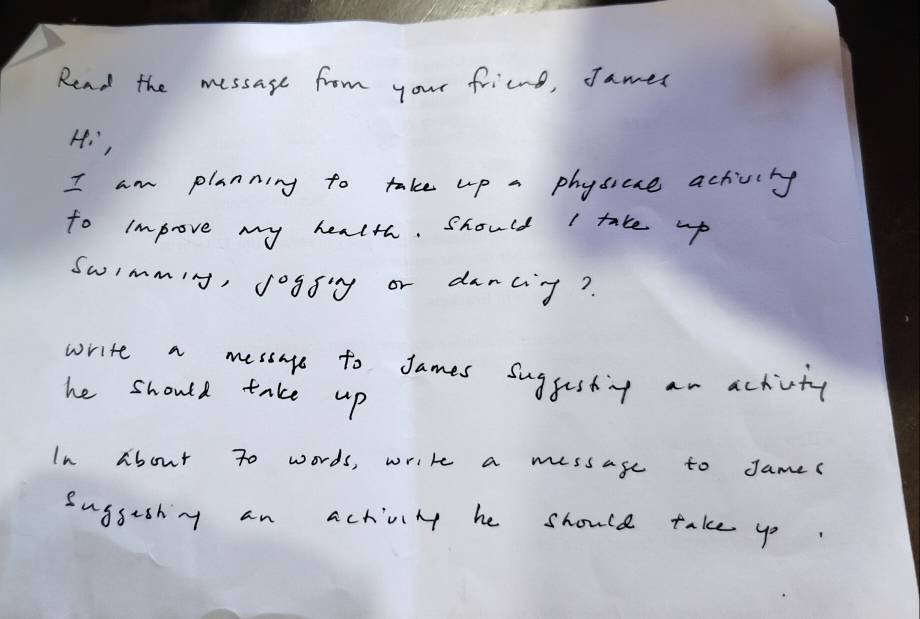 Read the message from your friend, James
Hi,
I am planning to take up a physical activity
to improve my health. Should I take up
Swimming, jogging or dancing?
Write a message to James Suggesting an activity
he should take up
In about 70 words, write a message to James
Suggesting an activity he should take up.